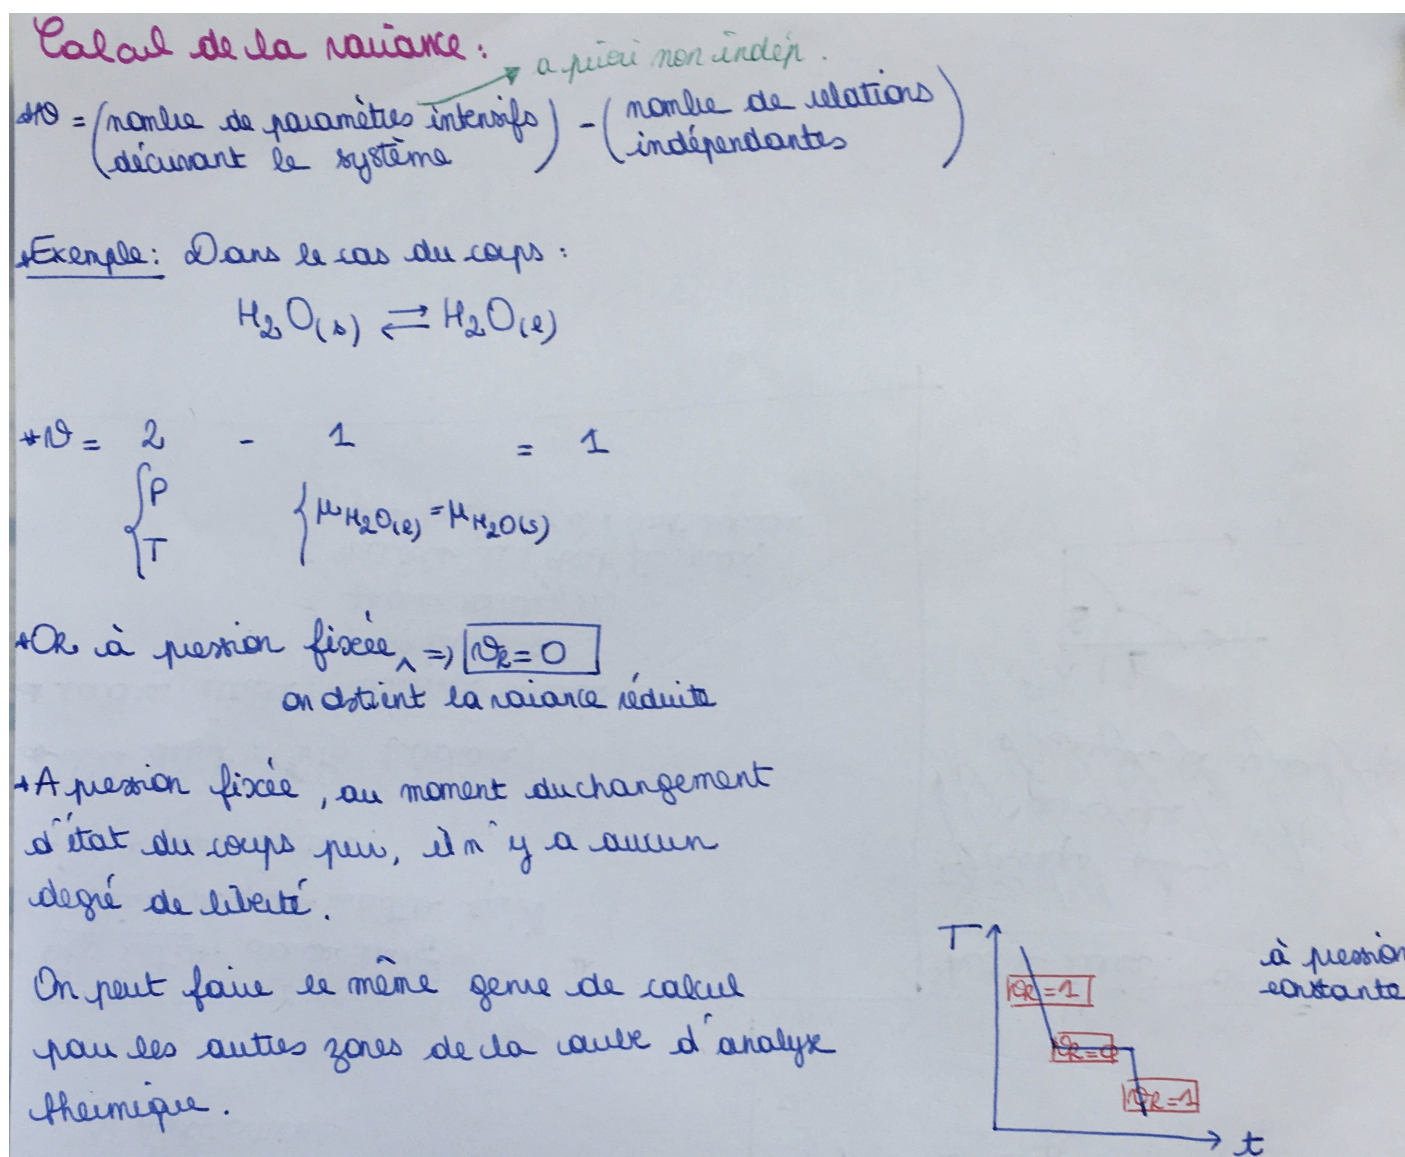 Calcul de la variance :
a priori non indép.
*v = (nombre de paramètres intensifs décrivant le système) - (nombre de relations indépendantes)
Exemple : Dans le cas du corps :
H₂O(s) ⇌ H₂O(l)
*v = 2 - 1 = 1
{P
T
{μH₂O(l) = μH₂O(s)
Or à pression fixée ^ => vR = 0
on obtient la variance réduite
A pression fixée, au moment du changement
d'état du corps pur, il n'y a aucun
degré de liberté.
On peut faire le même genre de calcul
pour les autres zones de la courbe d'analyse
thermique.
T
à pression
constante
vR = 1
vR = 0
vR = 1
t